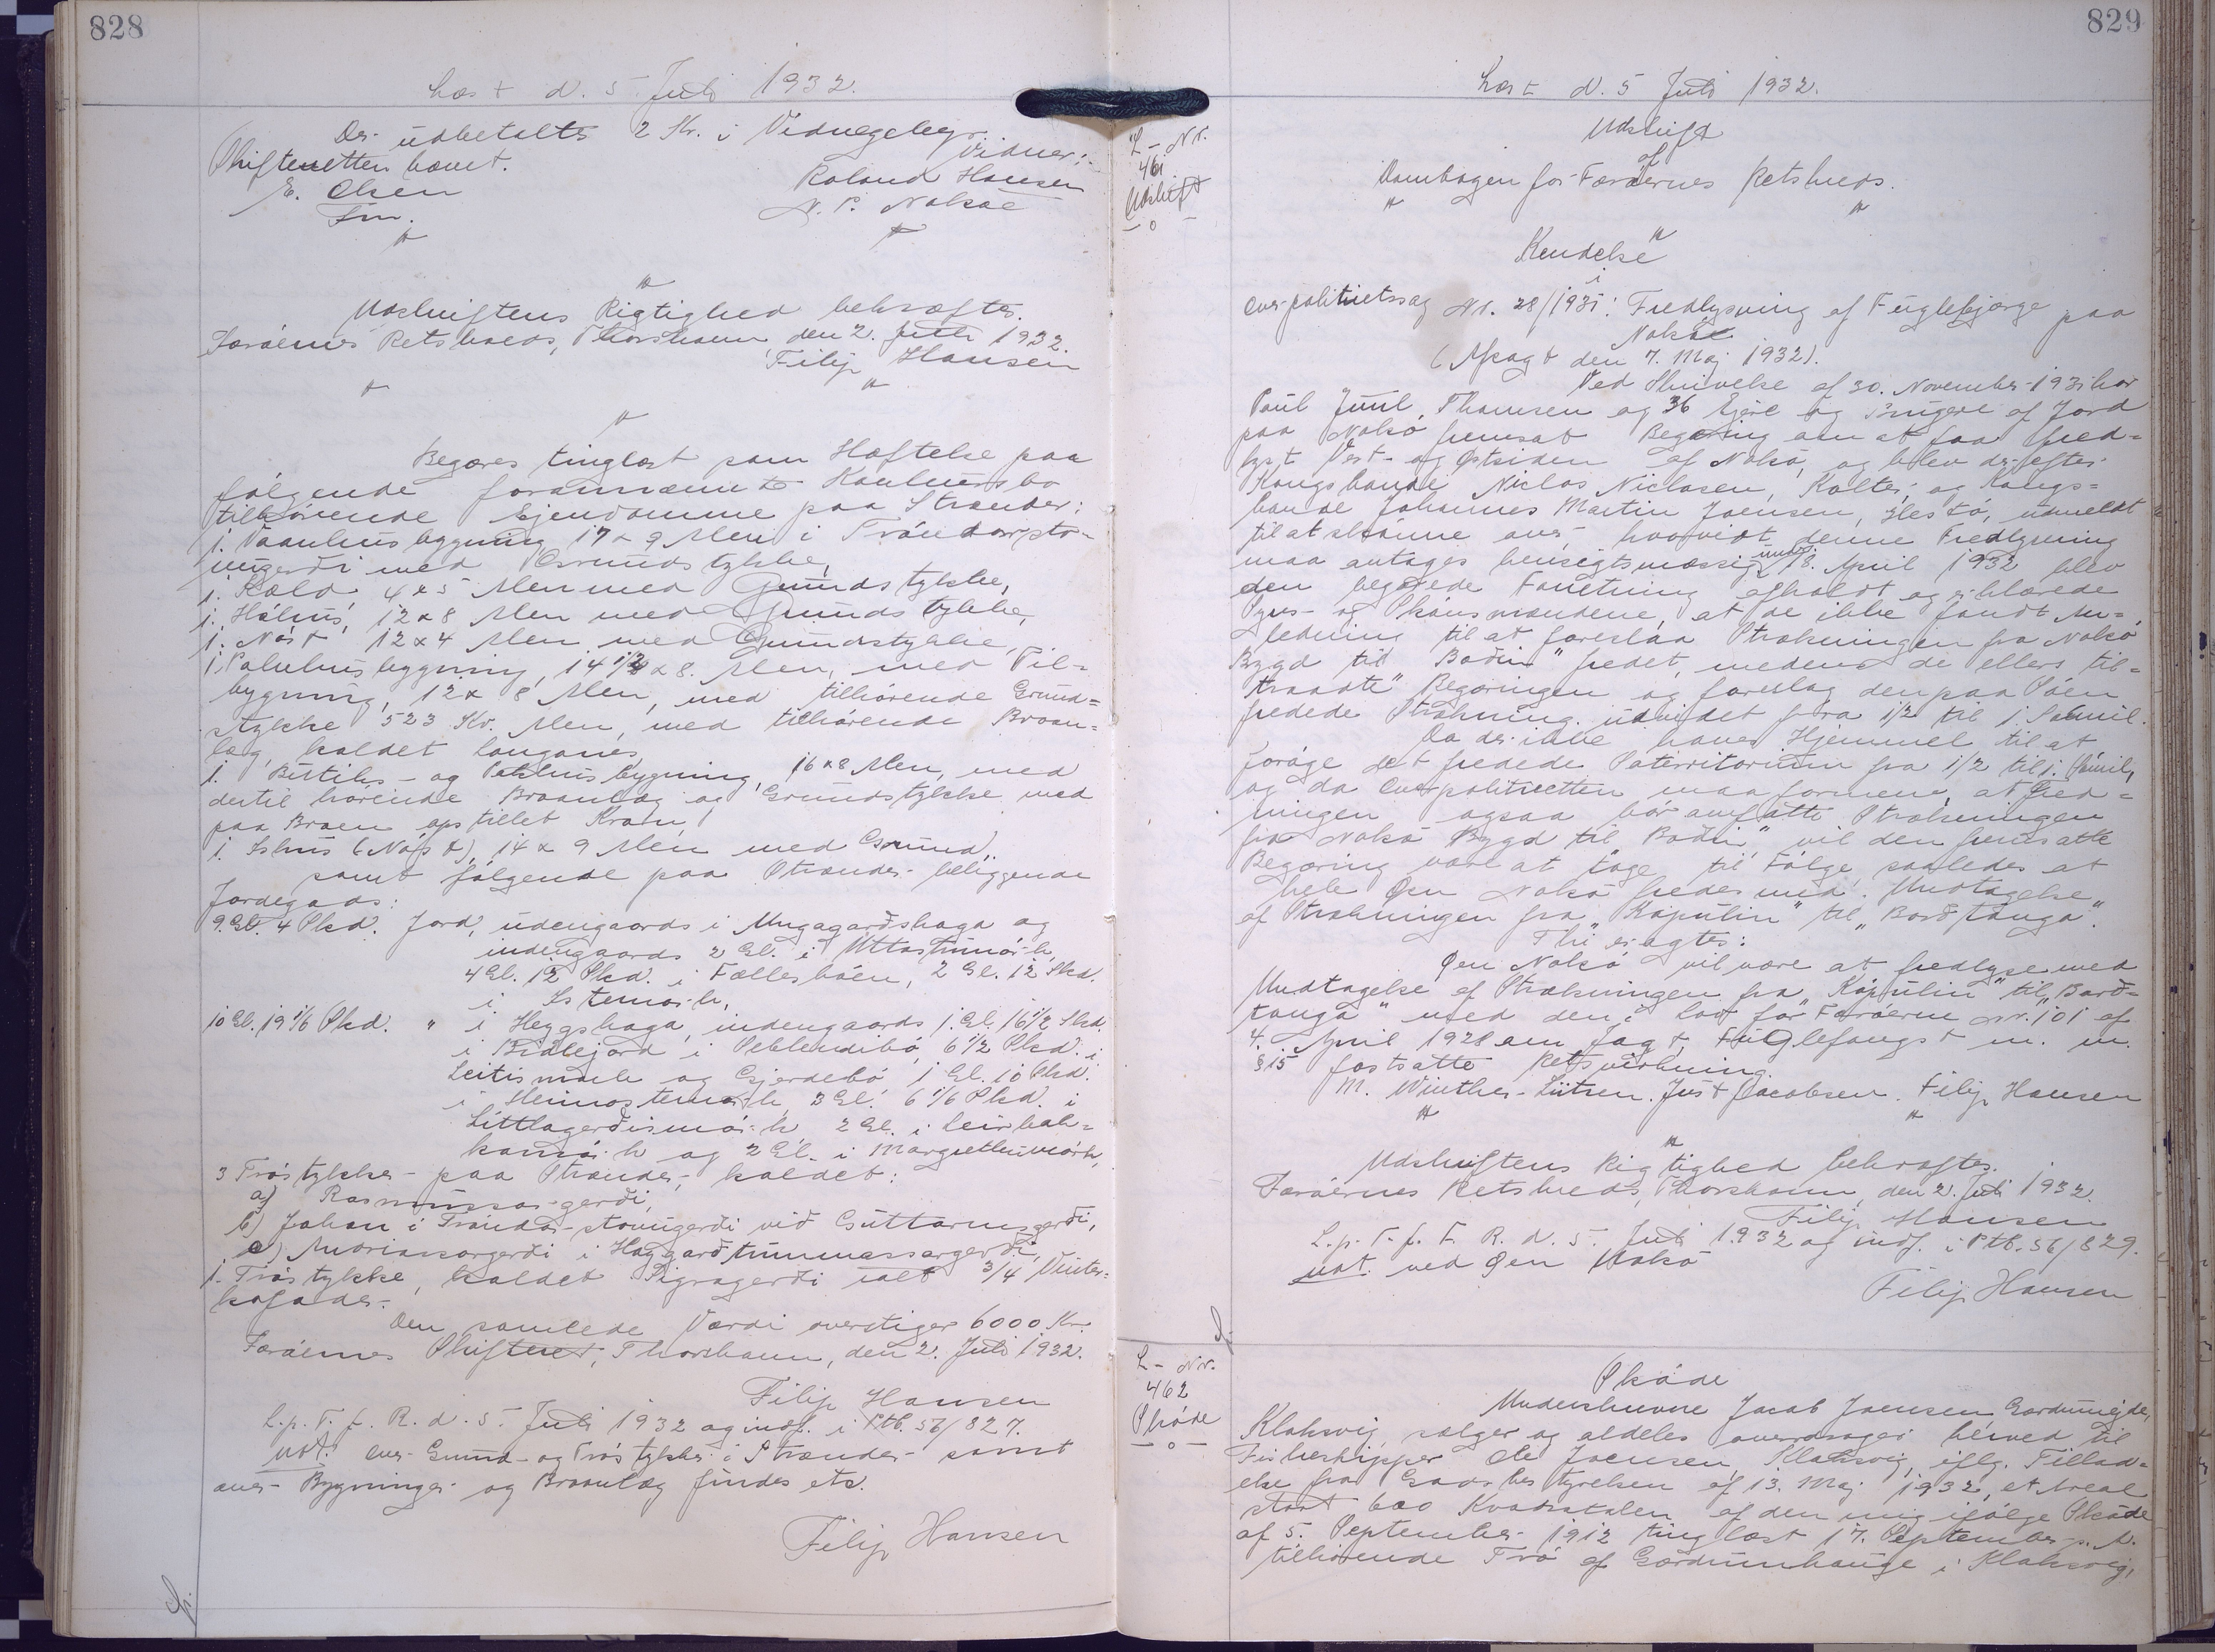 828
Læst d. 5 Juli 1932.
Der udbetaltes 2 Kr. i Vidnegebyr.
Skifteretten hævet.
Vidner:
E. Olsen
Fm.
Roland Hansen
N. P. Nolsøe
"
"
"
Udskriftens Rigtighed bekræftes.
Færøernes Retskreds, Thorshavn den 2. Juli 1932.
Filip Hansen
"
"
"
Begæres tinglæst som Hæftelse paa
følgende forannævnte Konkursbo
tilhørende Ejendomme paa Strænder:
1. Vaanhusbygning 17 x 9 Alen i Tróndarsto-
ugerði med Grundstykke,
1. Kæld 4 x 5 Alen med Grundstykke,
1. Hálhús, 12 x 8 Alen med Grundstykke,
1. Nóst 12 x 4 Alen med Grundstykke,
1. Pakhusbygning, 14 1/2 x 8. Alen, med Til-
bygning, 12 x 8 Alen, med tilhørende Grund=
stykke 523 Kv. Alen, med tilhørende Broan=
læg, kaldet langanes,
1. Butiks- og Pakhusbygning, 16 x 8 Alen, med
dertil hørende Broanlæg og Grundstykke med
paa Broen opstillet Kran,
1. Ishus (Nóst), 14 x 9 Alen med Grund,
samt følgende paa Strænder beliggende
Jordegods:
9. Gl. 4 Skd. Jord, udengaards i Mugagarðshaga og
indengaards 2 Gl. i Uttastumørk,
4 Gl. 12 Skd. i Fællesbøen, 2 Gl. 12 Skd.
i Istemørk,
10 Gl. 19 1/6 Skd. " i Heggshaga, indengaards 1. Gl. 16 1/2 Skd.
i Bidlejord i Veblendibø, 6 1/2 Skd. i
Leitismørk og Gjerdebø 1 Gl. 10 Skd.
i Heimastemørk, 3 Gl. 6 1/6 Skd. i
Littlagerðismørk 2 Gl. i leirbak=
kamørk og 2 Gl. i Margrethumørk,
3 Trøstykker paa Strænder, kaldet:
a) Rasmussargerði,
b) Johan i Tróndarstovugerði við Guttarmsgerði,
c) Andriassargerði i Høggarðtummassargerði,
1. Trøstykke, kaldet Sigragerði ialt 3/4 Vinter=
kofoder.
Den samlede Værdi overstiger 6000 Kr.
Færøernes Skifteret, Thorshavn, den 2. Juli 1932.
Filip Hansen
L. p. T. f. F. R. d. 5. Juli 1932 og indf. i Ptb. 56/827.
Not. over Grund- og Trøstykker i Strænder samt
over Bygninger og Broanlæg findes ets.
Filip Hansen
829
L- Nr.
461
Udskrift
- o -
Læst d. 5 Juli 1932.
Udskrift
af
Dombogen for Færøernes Retskreds.
"
"
"
Kendelse
i
Overpolitiretssag Nr. 28/1931: Fredlysning af Fuglebjærge paa
Nolsø
(Afsagt den 7. Maj 1932).
Ved Skrivelse af 30. November 1931 har
Poul Juul Thomsen og 36 Ejere og Brugere af Jord
paa Nolsø fremsat Begæring om at faa fred=
lyst Vest- og Østsiden af Nolsø, og blev derefter
Kongsbonde Niclas Niclasen, Kolter, og Kongs=
bonde Johannes Martin Joensen, Hestø, udmeldt
til at skønne over, hvorvidt denne Fredlysning
maa antages hensigtsmæssig. Under 18. April 1932 blev
den begærede Forretning afholdt og erklærede
Syns- og Skønsmændene, at de ikke fandt An=
ledning til at foreslaa Strækningen fra Nolsø
Bygd til "Boðin" fredet, medens de ellers til=
traadte Begæringen og foreslog den paa Søen
fredede Strækning udvidet fra 1/2 til 1. Sømil.
Da der ikke haves Hjemmel til at
forøge det fredede Søterritorium fra 1/2 til 1. Sømil,
og da Overpolitiretten maa formene, at Fred=
ningen ogsaa bør omfatte Strækningen
fra Nolsø Bygd til "Boðin", vil den fremsatte
Begæring være at tage til Følge saaledes at
hele Øen Nolsø fredes med Undtagelse
af Strækningen fra "Kápilin" til "Borðtanga".
Thi eragtes:
Øen Nolsø vil være at fredlyse med
Undtagelse af Strækningen fra "Kápilin" til "Borð=
tanga" med den i Lov for Færøerne Nr. 101 af
4. April 1928 om Jagt, Fuglefangst m. m.
§ 15 fastsatte Retsvirkning.
M. Winther-Lützen. Just Jacobsen. Filip Hansen
"
"
"
Udskriftens Rigtighed bekræftes.
Færøernes Retskreds, Thorshavn, den 2. Juli 1932.
Filip Hansen
L. p. T. f. F. R. d. 5. Juli 1932 og indf. i Ptb. 56/829.
Not. ved Øen Nolsø
Filip Hansen
L- Nr.
462
Skøde
- o -
Skøde
Underskrevne Jacob Joensen, Gærdumigjde,
Klaksvig sælger og aldeles overdrager herved til
Fiskeskipper Ole Joensen, Klaksvig, iflg. Tillad=
else fra Jordbestyrelsen af 13. Maj 1932, et Areal
stort 600 Kvadratalen af den mig ifølge Skøde
af 5. September 1912 tinglæst 17. September s. A.
tilhørende Trø af Gærdumhauge i Klaksvig,